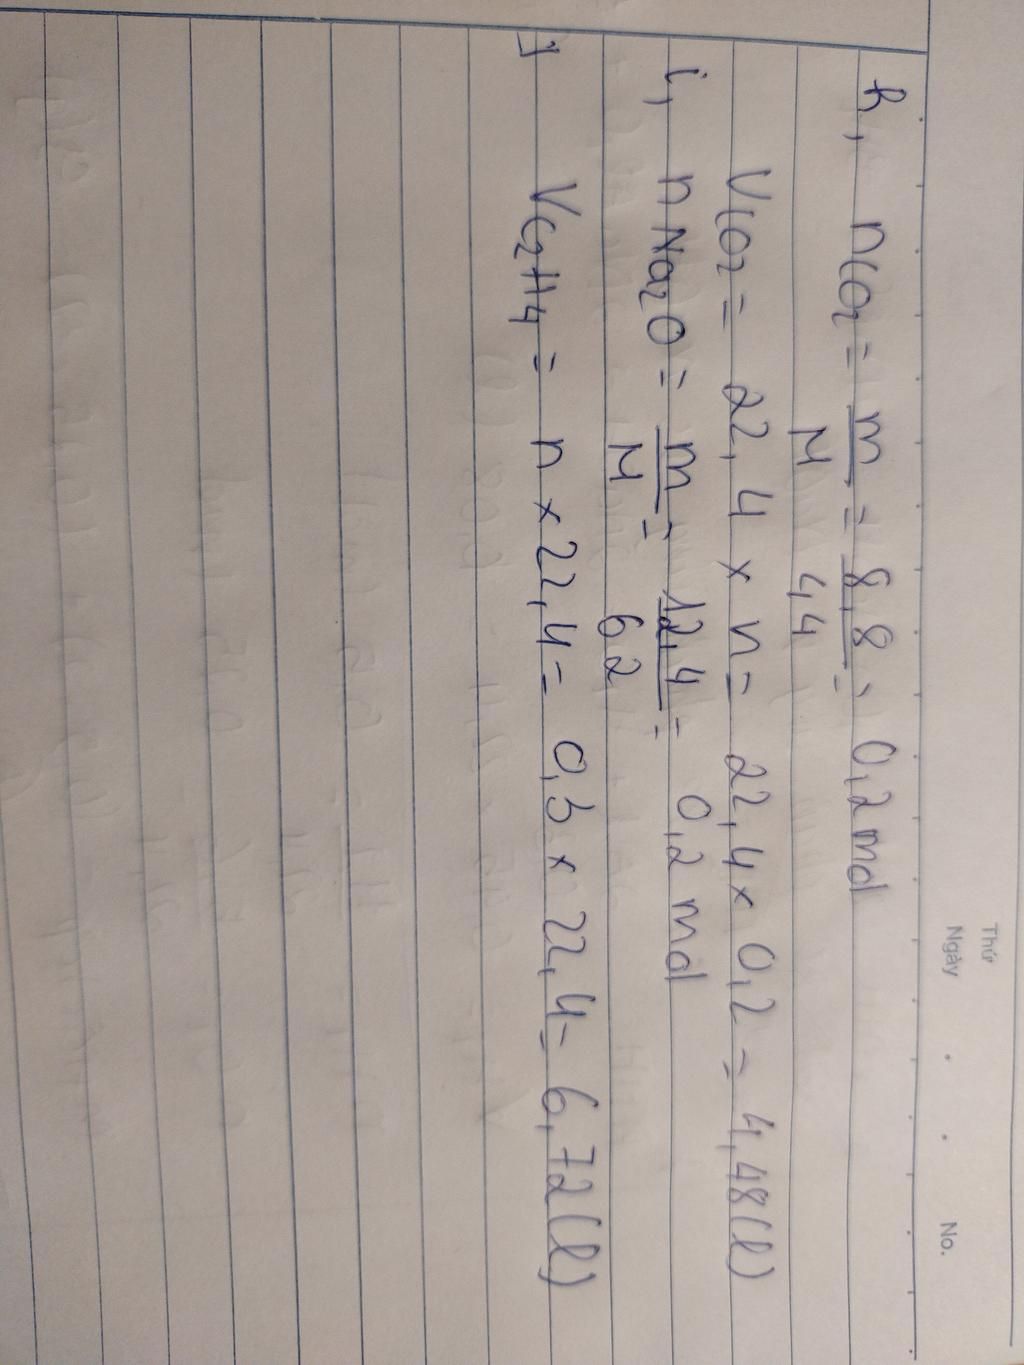 Thứ
Ngày . . No.
h, nCO2 = m/M = 8,8/44 = 0,2 mol
VCO2 = 22,4 x n = 22,4 x 0,2 = 4,48 (l)
i, nNa2O = m/M = 12,4/62 = 0,2 mol
j VC2H4 = n x 22,4 = 0,3 x 22,4 = 6,72 (l)